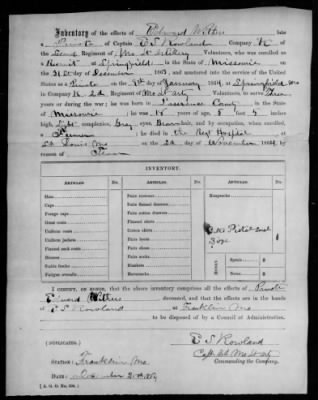 Inventory of the effects of Edward Withers
a Private of Captain C S Rowland Company K of
the Second Regiment of Mo Lt Artillery Volunteers, who was enrolled as a
Recruit at Springfield in the State of Missouri on the
31st day of December 1863, and mustered into the service of the United
States as a Private on the day of January 1864, at Springfield Mo
in Company K 2d Regiment of Mo Lt Arty Volunteers, to serve Three
years or during the war; he was born in Lawrence County
in the State of Missouri; he was 18 years of age, 5 feet 5 inches
high, Light complexion, Grey eyes, Brown hair, and by occupation, when enrolled,
a Farmer; he died in the Regt Hospital
at St Louis Mo on the 2d day of November 1864, by
reason of
INVENTORY.
Articles. No. Articles. No. Articles. No.
Hats
Forage caps
Great coats
Uniform coats
Uniform jackets
Flannel sack coats
Blouses
Stable frocks
Fatigue overalls
Pairs trowsers
Pairs flannel drawers
Pairs cotton drawers
Flannel shirts
Cotton shirts
Pairs boots
Pairs shoes
Pairs socks
Blankets
Haversacks
Knapsacks
MONEY. Specie $
Notes $
I certify, on honor, that the above inventory comprises all the effects of Private
Edward Withers deceased, and that the effects are in the hands
of C S Rowland at Franklin Mo
to be disposed of by a Council of Administration.
C S Rowland
Capt Co K 2d Mo Lt Arty
Commanding the Company.
(DUPLICATES.)
Station: Franklin Mo
Date: November 20th 1864
[A. G. O. No.